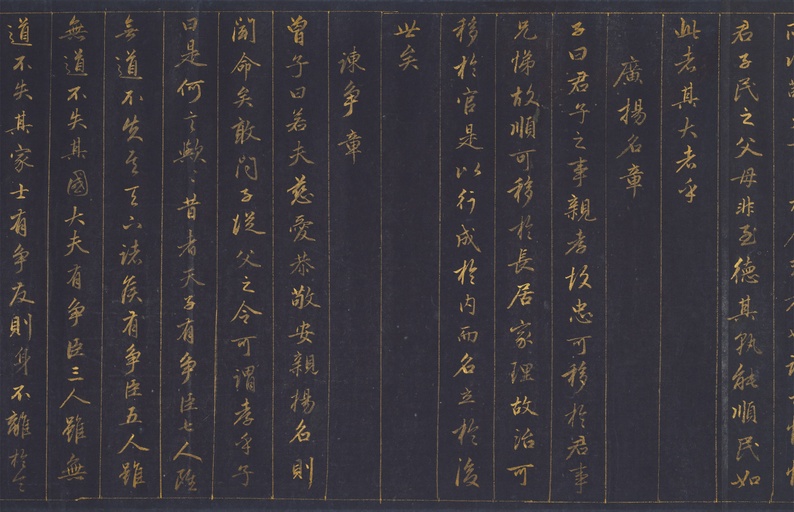 君子民之父母非至德其孰能順民如
此者其大者乎
廣揚名章
子曰君子之事親孝故忠可移於君事
兄悌故順可移於長居家理故治可
移於官是以行成於內而名立於後
世矣
諫爭章
曾子曰若夫慈愛恭敬安親揚名則
聞命矣敢問子從父之令可謂孝乎子
曰是何言歟昔者天子有爭臣七人雖
無道不失其天下諸侯有爭臣五人雖
無道不失其國大夫有爭臣三人雖無
道不失其家士有爭友則身不離於令